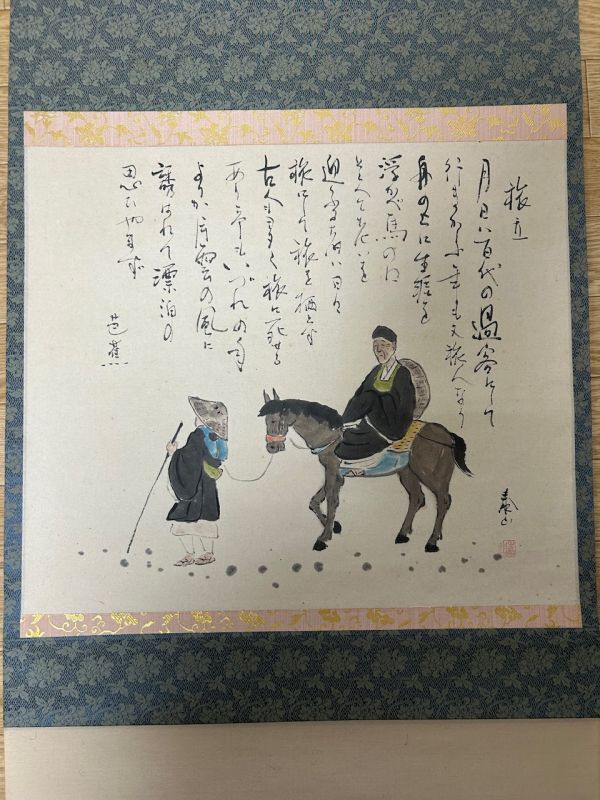 旅立
月日ハ百代の過客にして
行きかふ年も又旅人なり
舟の上に生涯を
浮かべ馬の口
とらへて老いを
迎ふる ハ日々
旅にして旅を栖とす
古人も多く旅に死せる
あり予もいづれの年
よりか片雲の風に
誘はれて漂泊の
思ひやまず
芭蕉
泰山